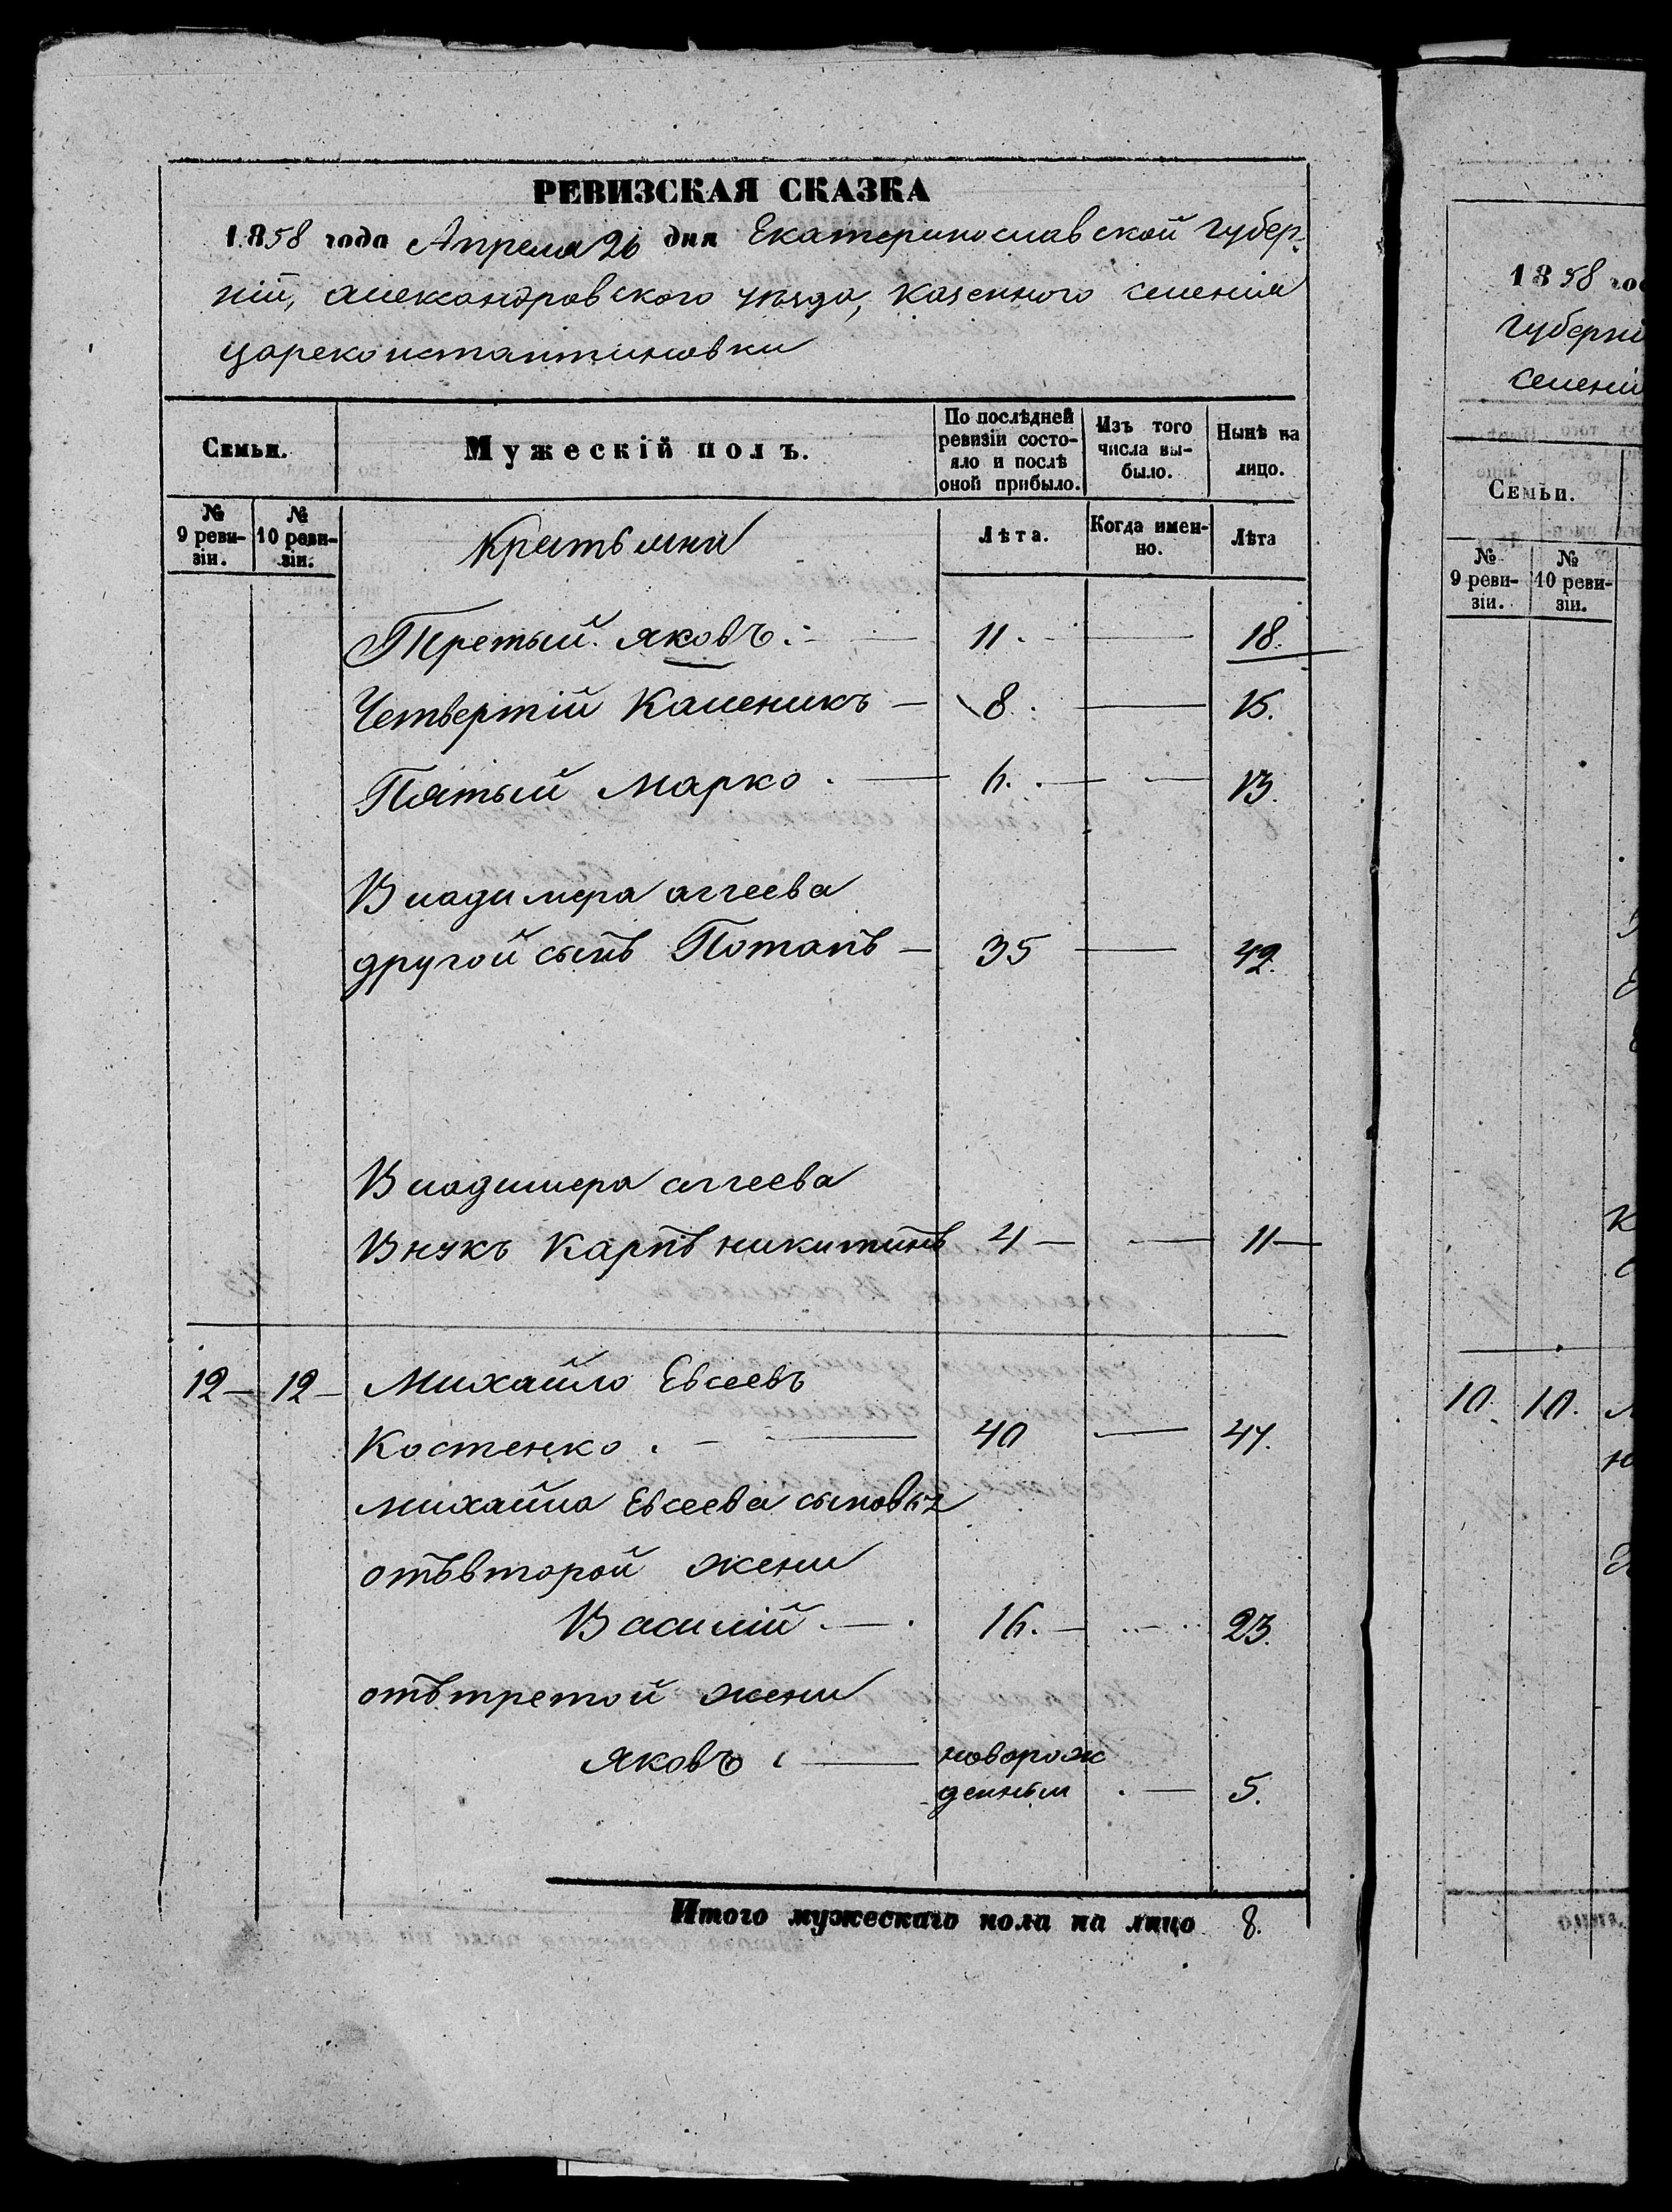 РЕВИЗСКАЯ СКАЗКА
1858 года Апреля 26 дня Екатеринославской губер-
нiи, александровского уѣзда, казенного селенiя
цареконстантиновки
Семьи.
Мужескiй полъ.
По послѣдней ревизiи состо-яло и послѣ оной прибыло.
Изъ того числа вы-было.
Нынѣ на лицо.
№ 9 реви-зiи.
№ 10 реви-зiи.
крестьяни
Лѣта.
Когда имен-но.
Лѣта
Третый яковъ 11. 18.
Четвертiй Каленикъ 8. 15.
Пятый марко 6. 13.
Владимера аггеева
другой сынъ Потапъ 35 42.
Владимера аггеева
Внукъ Карпъ никитинъ 4 11
12 12 Михайло Евсеевъ
Костенко 40 47.
михайла Евсеева сыновья
отъвторой жени
Василiй 16. 23.
отътретой жени
яковъ новорож
денный 5.
Итого мужескаго пола на лицо 8.
1858 го
губернi
селенi
Семьи.
№ 9 реви-зiи.
№ 10 реви-зiи.
10. 10.